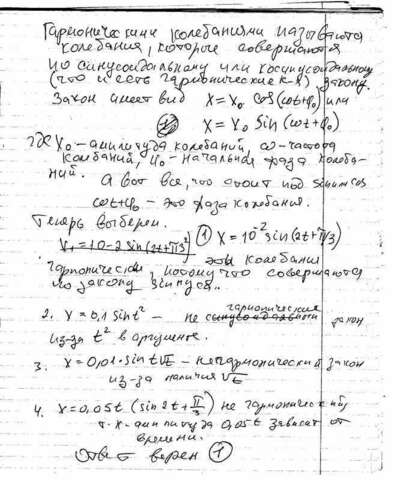 Гармоническими колебаниями называются
колебания, которые совершаются
по синусоидальному или косинусоидальному
(что и есть гармонические к-я) закону.
Закон имеет вид X = X₀ cos(ωt+φ₀) или
X = X₀ sin(ωt+φ₀)
где X₀ - амплитуда колебаний, ω - частота
колебаний, φ₀ - начальная фаза колеба-
ний.
А вот все, что стоит под sin или cos
ωt+φ₀ - это фаза колебания.
Теперь выберем.
X₁ = 10-2 sin(2t+π/3) ① X = 10⁻² sin(2t+π/3)
эти колебания
гармонические, потому что совершаются
по закону синуса..
гармонический
2. X = 0,1 sin t² - не закон
из-за t² в аргументе.
3. X = 0,01·sin t√t - негармонический закон
из-за наличия √t
4. X = 0,05t (sin 2t + π/3) не гармонический,
т.к. амплитуда 0,05t зависит от
времени.
Ответ верен ①